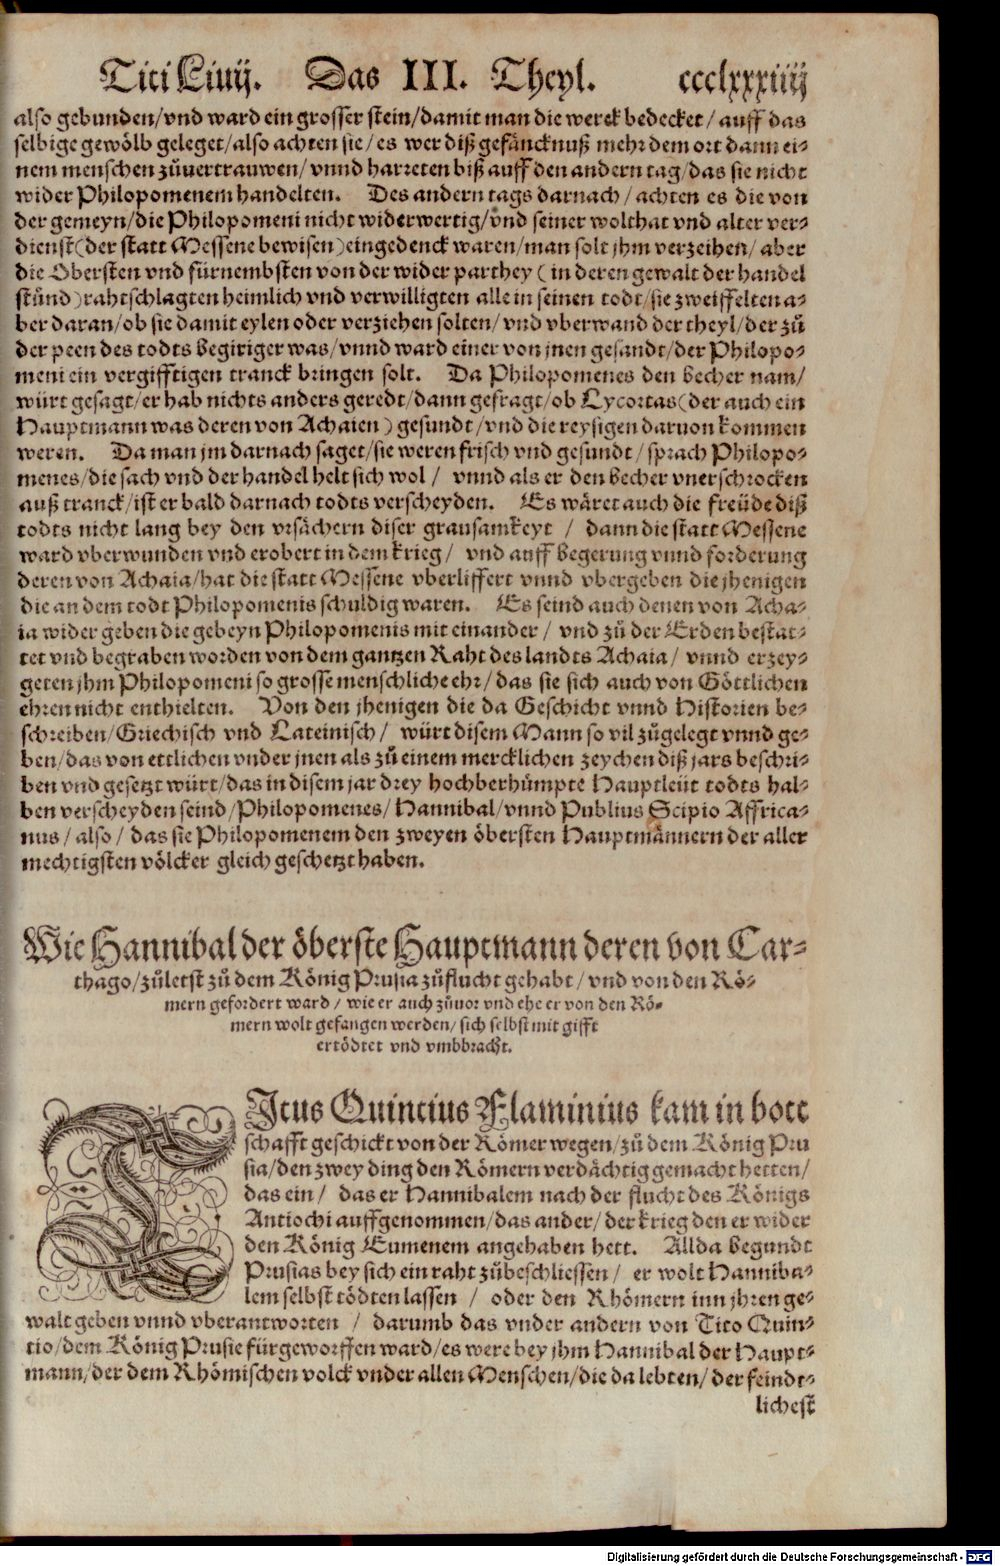 Titi Liuij. Das III. Theyl. ccclxxxiiij
also gebunden/vnd ward ein grosser stein/damit man die werck bedecket/auff das
selbige gewölb geleget/also achten sie/es wer diß gefäncknuß mehr dem ort dann ei⸗
nem menschen zůuertrauwen/vnnd harreten biß auff den andern tag/das sie nicht
wider Philopomenem handelten. Des andern tags darnach/achten es die von
der gemeyn/die Philopomeni nicht widerwertig/vnd seiner wolthat vnd alter ver⸗
dienst(der statt Messene bewisen)eingedenck waren/man solt jhm verzeihen/aber
die Obersten vnd fürnembsten von der wider parthey(in deren gewalt der handel
stůnd)rahtschlagten heimlich vnd verwilligten alle in seinen todt/sie zweiffelten a⸗
ber daran/ob sie damit eylen oder verziehen solten/vnd vberwand der theyl/der zů
der peen des todts begiriger was/vnnd ward einer von jnen gesandt/der Philopo⸗
meni ein vergifftigen tranck bringen solt. Da Philopomenes den becher nam/
würt gesagt/er hab nichts anders geredt/dann gefragt/ob Lycortas(der auch ein
Hauptmann was deren von Achaien)gesundt/vnd die reysigen daruon kommen
weren. Da man jm darnach saget/sie weren frisch vnd gesundt/sprach Philopo⸗
menes/die sach vnd der handel helt sich wol/vnnd als er den becher vnerschrocken
auß tranck/ist er bald darnach todts verscheyden. Es wäret auch die freüde diß
todts nicht lang bey den vrsächern diser grausamkeyt/dann die statt Messene
ward vberwunden vnd erobert in dem krieg/vnd auff begerung vnnd forderung
deren von Achaia/hat die statt Messene vberliffert vnnd vbergeben die jhenigen
die an dem todt Philopomenis schuldig waren. Es seind auch denen von Acha⸗
ia wider geben die gebeyn Philopomenis mit einander/vnd zů der Erden bestat⸗
tet vnd begraben worden von dem gantzen Raht des landts Achaia/vnnd erzey⸗
geten jhm Philopomeni so grosse menschliche ehr/das sie sich auch von Göttlichen
ehren nicht enthielten. Von den jhenigen die da Geschicht vnnd Historien be⸗
schreiben/Griechisch vnd Lateinisch/würt disem Mann so vil zůgelegt vnnd ge⸗
ben/das von ettlichen vnder jnen als zů einem mercklichen zeychen diß jars beschri⸗
ben vnd gesetzt würt/das in disem jar drey hochberhümpte Hauptleüt todts hal⸗
ben verscheyden seind/Philopomenes/Hannibal/vnnd Publius Scipio Affrica⸗
nus/also/das sie Philopomenem den zweyen öbersten Hauptmännern der aller
mechtigsten völcker gleich geschetzt haben.
Wie Hannibal der öberste Hauptmann deren von Car⸗
thago/zůletst zů dem König Prusia zůflucht gehabt/vnd von den Rö⸗
mern gefordert ward/wie er auch zůuor vnd ehe er von den Rö⸗
mern wolt gefangen werden/sich selbst mit gifft
ertödtet vnd vmbbracht.
TItus Quintius Flaminius kam in bott
schafft geschickt von der Römer wegen/zů dem König Pru
sia/den zwey ding den Römern verdächtig gemacht hetten/
das ein/das er Hannibalem nach der flucht des Königs
Antiochi auffgenommen/das ander/der krieg den er wider
den König Eumenem angehaben hett. Allda begundt
Prusias bey sich ein raht zůbeschliessen/er wolt Hanniba⸗
lem selbst tödten lassen/oder den Rhömern inn jhren ge⸗
walt geben vnnd vberantworten/darumb das vnder andern von Tito Quin⸗
tio/dem König Prusie fürgeworffen ward/es were bey jhm Hannibal der Haupt⸗
mann/der dem Rhömischen volck vnder allen Menschen/die da lebten/der feindt⸗
lichest
Digitalisierung gefördert durch die Deutsche Forschungsgemeinschaft - DFG